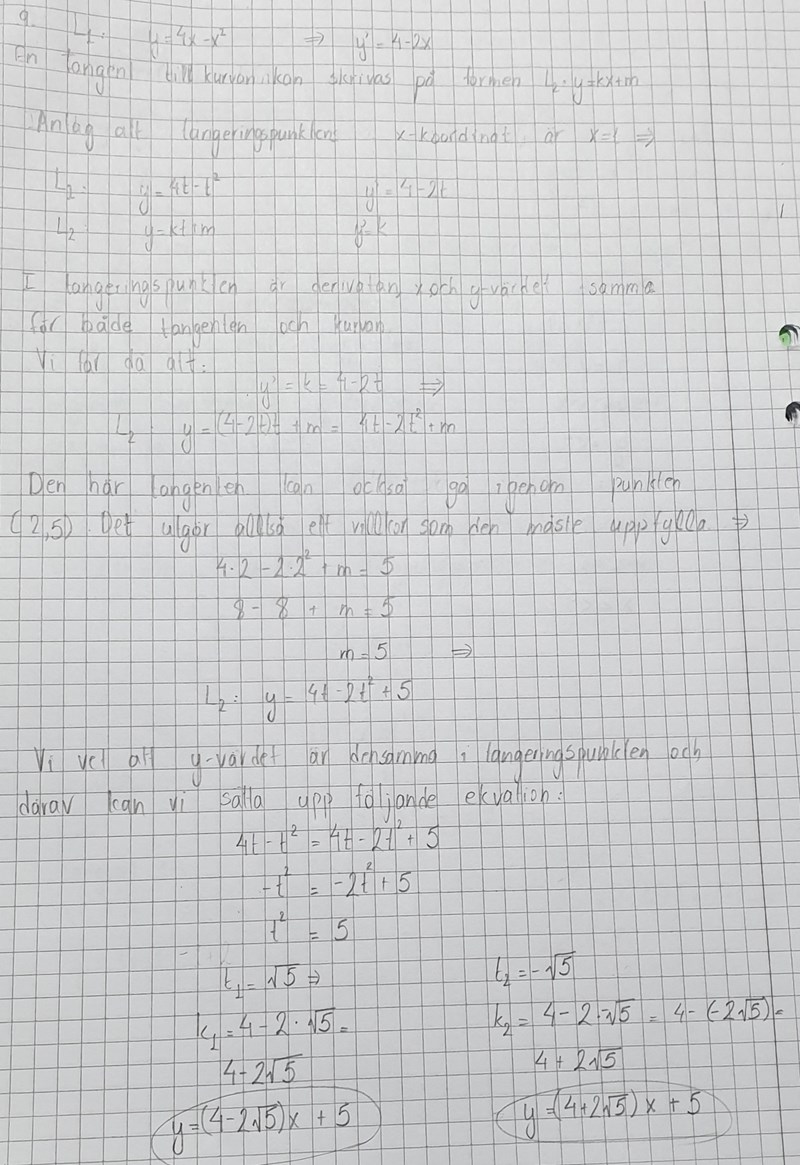 9. L1: y=4x-x² ⇒ y'=4-2x
En tangent till kurvan kan skrivas på formen L2: y=kx+m
Antag att tangeringspunktens x-koordinat är x=t ⇒
L1: y=4t-t² y'=4-2t
L2: y=kt+m y'=k
I tangeringspunkten är derivatan, x och y-värdet samma
för både tangenten och kurvan
Vi får då att:
y'=k=4-2t ⇒
L2: y=(4-2t)t+m=4t-2t²+m
Den här tangenten kan också gå igenom punkten
(2,5). Det utgör alltså ett villkor som den måste uppfylla ⇒
4·2-2·2²+m=5
8-8+m=5
m=5 ⇒
L2: y=4t-2t²+5
Vi vet att y-värdet är densamma i tangeringspunkten och
därav kan vi sätta upp följande ekvation:
4t-t²=4t-2t²+5
-t²=-2t²+5
t²=5
t1=√5 ⇒ t2=-√5
k1=4-2·√5= k2=4-2·-√5=4-(-2√5)=
4-2√5 4+2√5
y=(4-2√5)x+5 y=(4+2√5)x+5